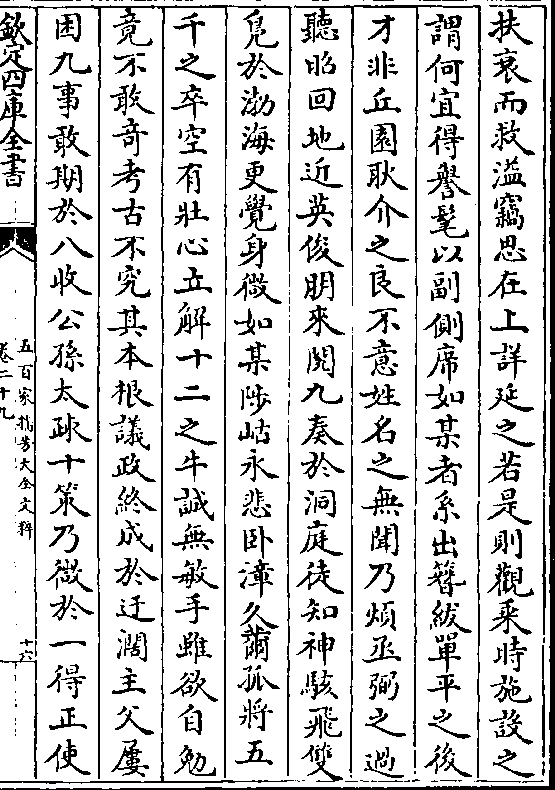 扶衰而救溢竊思在上詳延之若是則觀乘時施設之
謂何宜得譽髦以副側席如某者系出簪紱單平之後
才非丘園耿介之良不意姓名之無聞乃煩丞弼之過
聽昭回地近英俊朋來閱九奏於洞庭徒知神駭飛雙
鳧於渤海更覺身微如某陟岵永悲卧漳久薾孤將五
千之卒空有壯心立解十二之牛誠無敏手雖欲自勉
竟不敢奇考古不究其本根議政終成於迂濶主父屢
困九事敢期於八收公孫太疎十策乃微於一得正使
欽定四庫全書
五百家播芳大全文粹
卷二十九
十六